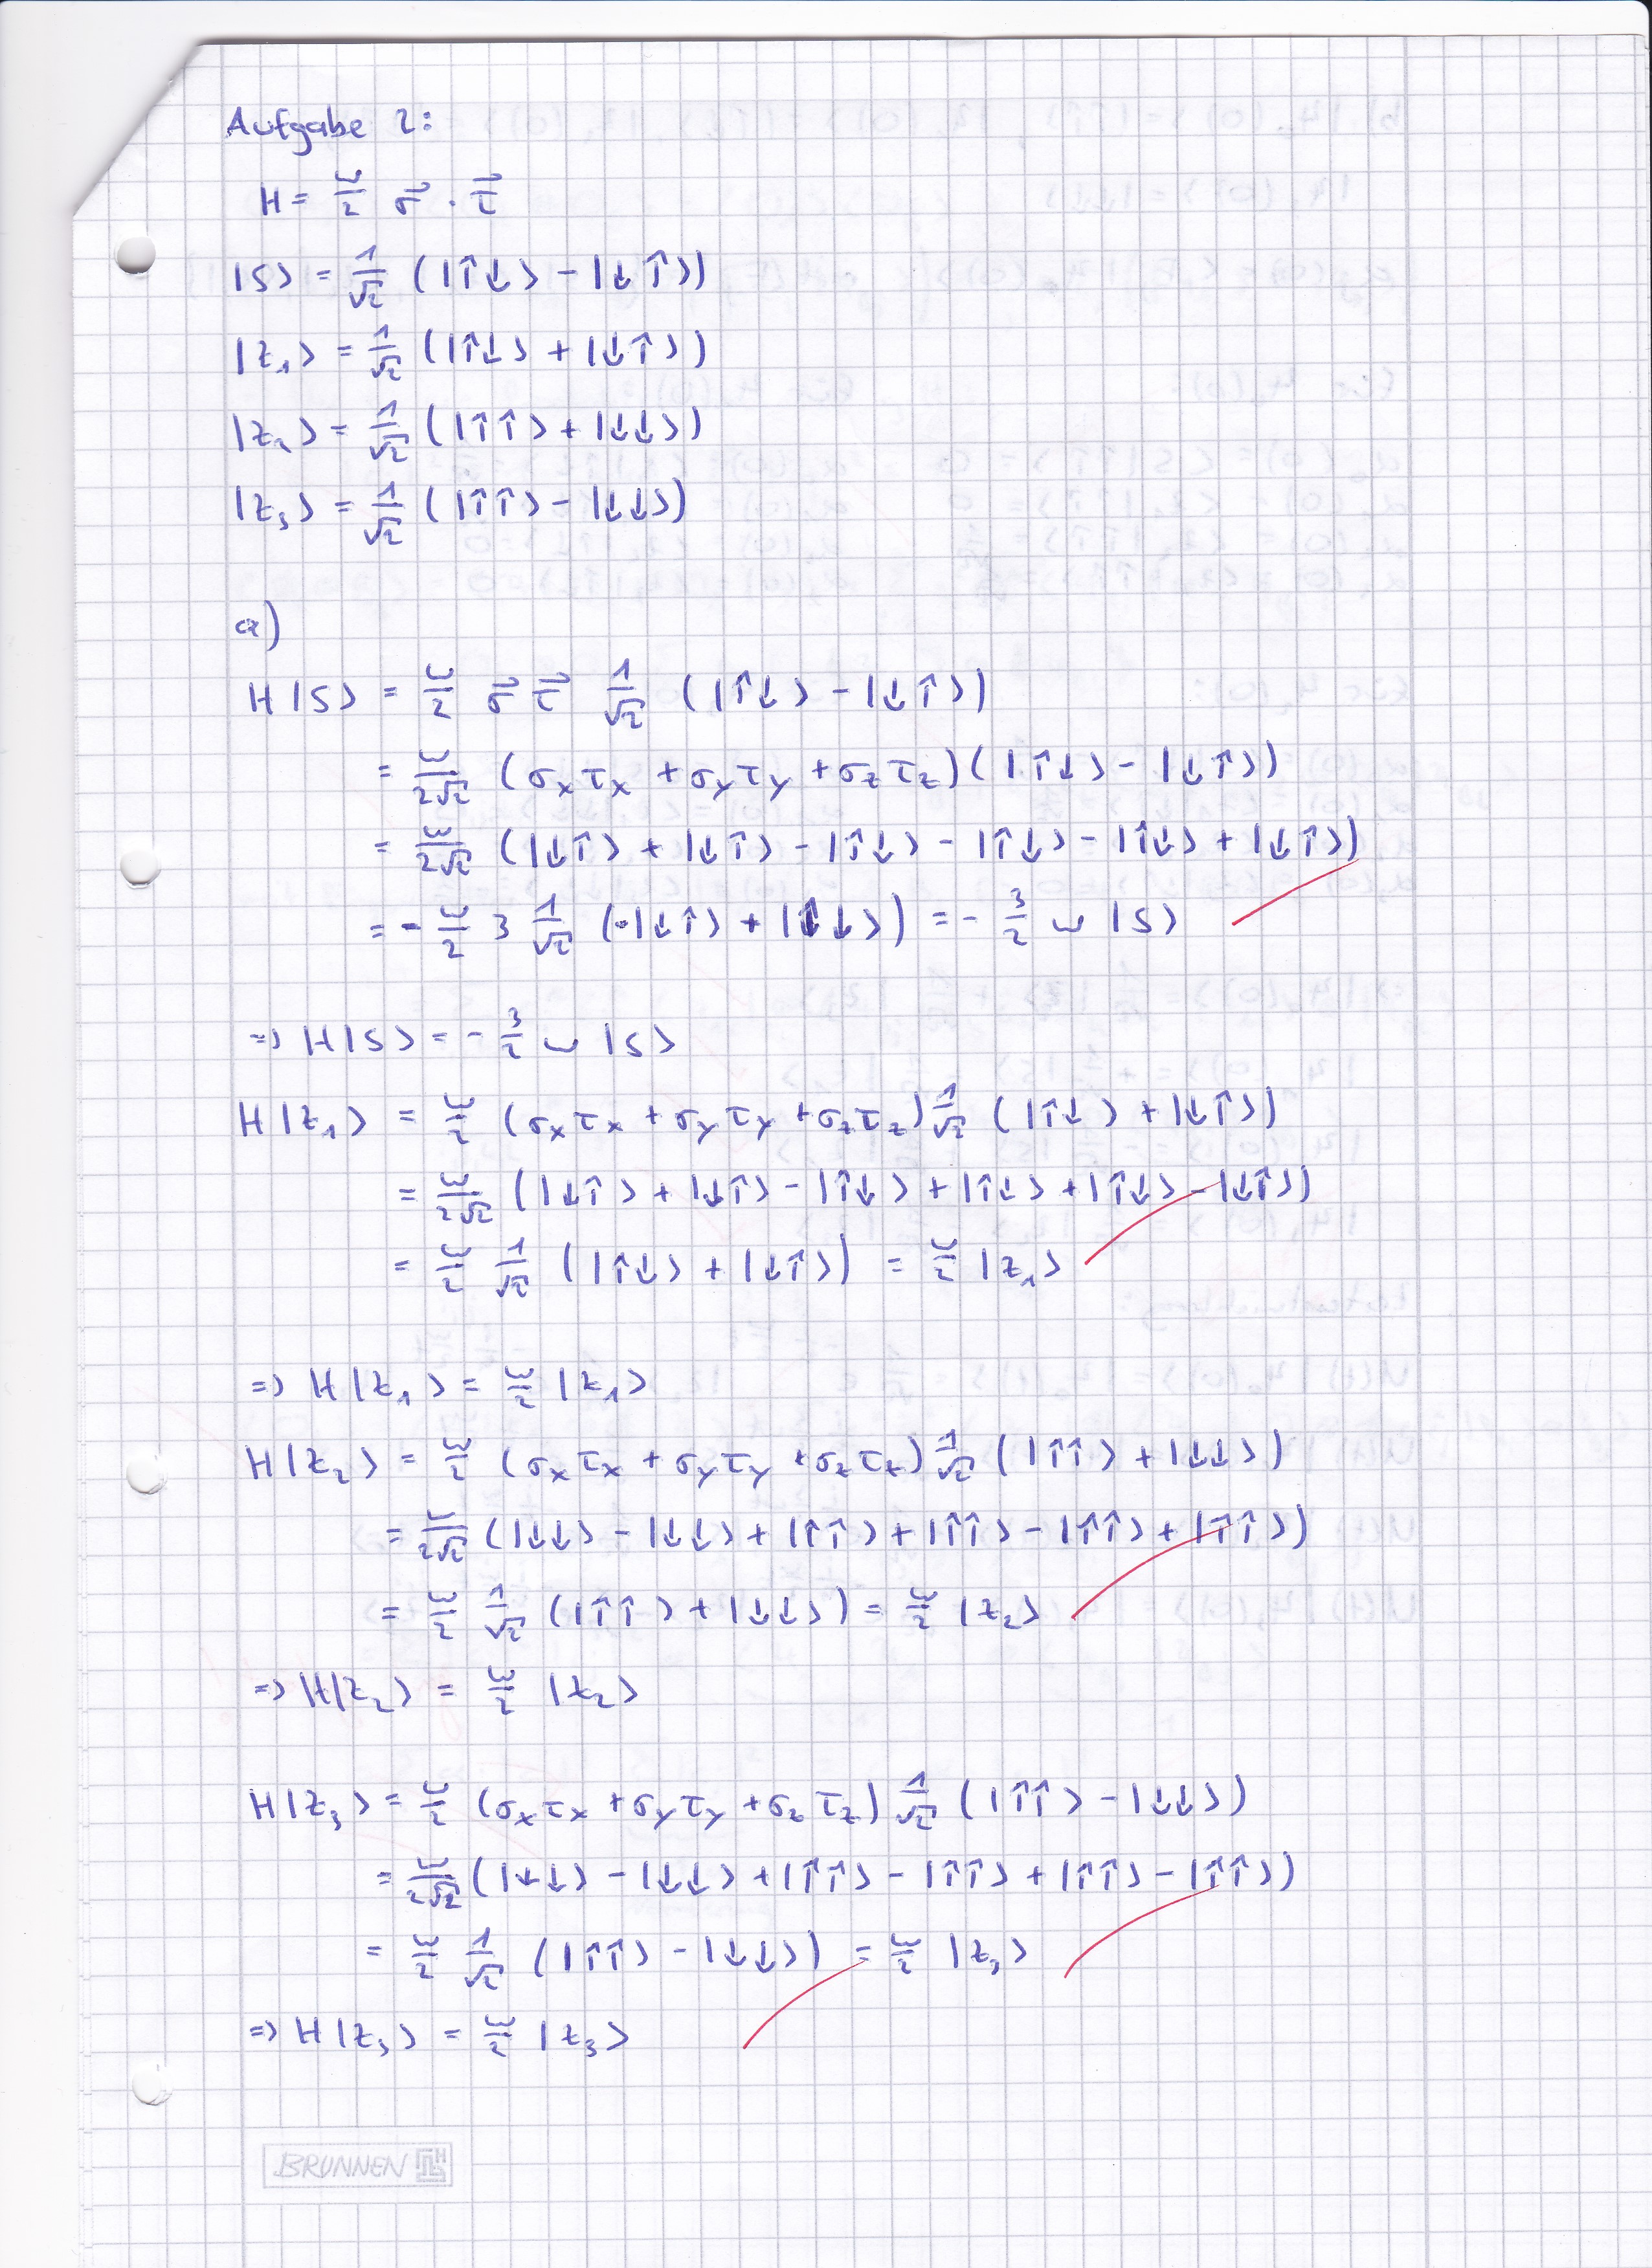 Aufgabe 2:
H = ω/2 σ⃗ · τ⃗
|S⟩ = 1/√2 (|↑↓⟩ - |↓↑⟩)
|z₁⟩ = 1/√2 (|↑↓⟩ + |↓↑⟩)
|z₂⟩ = 1/√2 (|↑↑⟩ + |↓↓⟩)
|z₃⟩ = 1/√2 (|↑↑⟩ - |↓↓⟩)
a)
H|S⟩ = ω/2 σ⃗ τ⃗ 1/√2 (|↑↓⟩ - |↓↑⟩)
= ω/2√2 (σₓτₓ + σ_yτ_y + σ_zτ_z)(|↑↓⟩ - |↓↑⟩)
= ω/2√2 (|↓↑⟩ + |↓↑⟩ - |↑↓⟩ - |↑↓⟩ - |↑↓⟩ + |↓↑⟩)
= - ω/2 3 1/√2 (-|↓↑⟩ + |↑↓⟩) = - 3/2 ω |S⟩
⇒ H|S⟩ = - 3/2 ω |S⟩
H|z₁⟩ = ω/2 (σₓτₓ + σ_yτ_y + σ_zτ_z) 1/√2 (|↑↓⟩ + |↓↑⟩)
= ω/2√2 (|↓↑⟩ + |↓↑⟩ - |↑↓⟩ + |↑↓⟩ + |↑↓⟩ - |↓↑⟩)
= ω/2 1/√2 (|↑↓⟩ + |↓↑⟩) = ω/2 |z₁⟩
⇒ H|z₁⟩ = ω/2 |z₁⟩
H|z₂⟩ = ω/2 (σₓτₓ + σ_yτ_y + σ_zτ_z) 1/√2 (|↑↑⟩ + |↓↓⟩)
= ω/2√2 (|↓↓⟩ - |↓↓⟩ + |↑↑⟩ + |↑↑⟩ - |↑↑⟩ + |↑↑⟩)
= ω/2 1/√2 (|↑↑⟩ + |↓↓⟩) = ω/2 |z₂⟩
⇒ H|z₂⟩ = ω/2 |z₂⟩
H|z₃⟩ = ω/2 (σₓτₓ + σ_yτ_y + σ_zτ_z) 1/√2 (|↑↑⟩ - |↓↓⟩)
= ω/2√2 (|↓↓⟩ - |↓↓⟩ + |↑↑⟩ - |↑↑⟩ + |↑↑⟩ - |↑↑⟩)
= ω/2 1/√2 (|↑↑⟩ - |↓↓⟩) = ω/2 |z₃⟩
⇒ H|z₃⟩ = ω/2 |z₃⟩
BRUNNEN